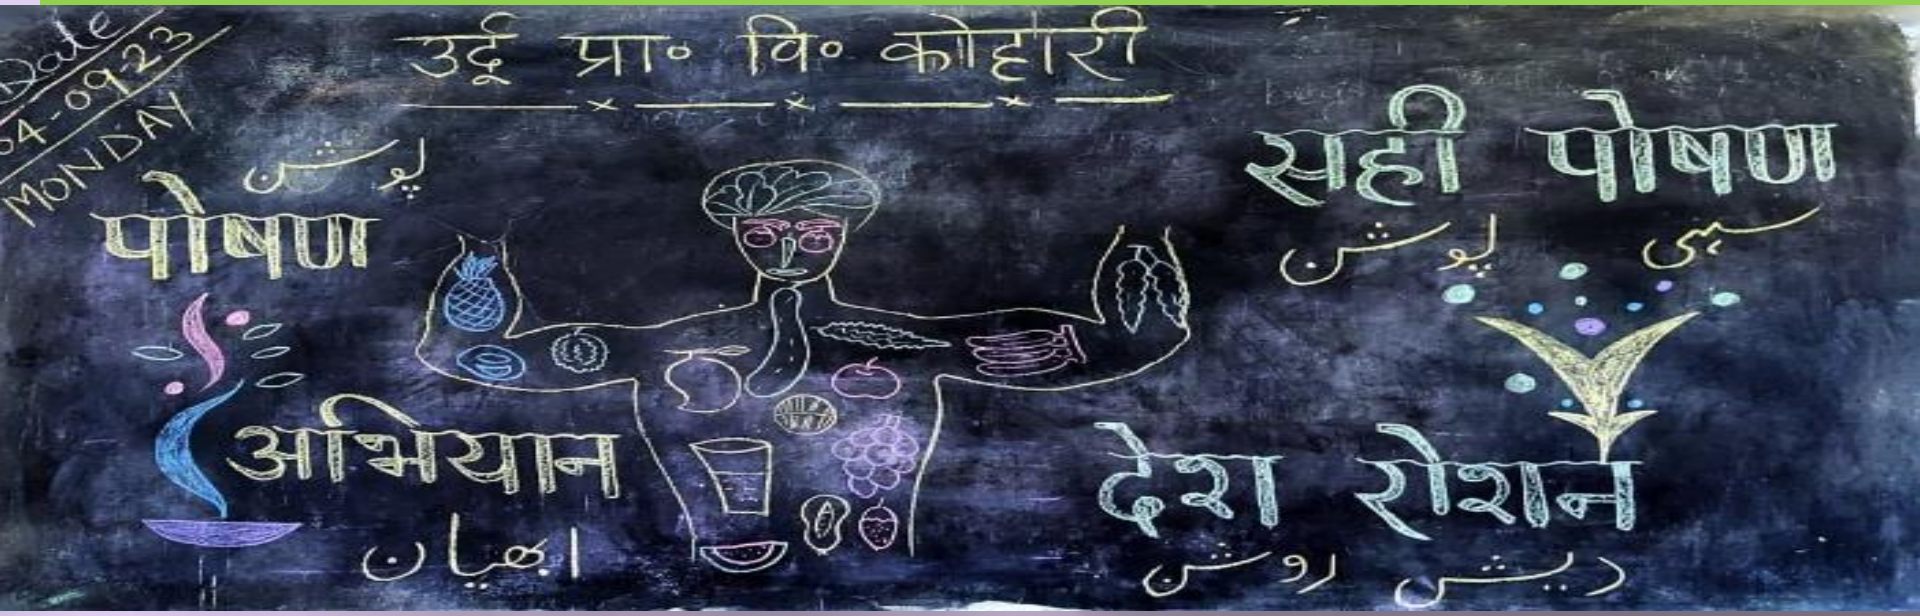 Date
04-09-23
MONDAY
उर्दू प्रा० वि० कोहारी
پوشن
पोषण
अभियान
ابھیان
सही पोषण
سہی پوشن
देश रोशन
دیش روشن